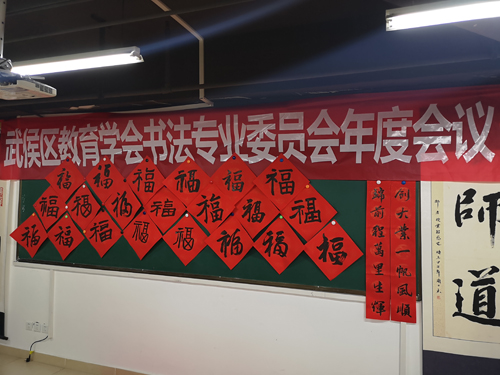 武侯区教育学会书法专业委员会年度会议
福 福 福 福 福 福
福 福 福 福 福 福 福
福 福 福 福 福 福 福 福
创大業一帆風順
前程萬里生輝
師道